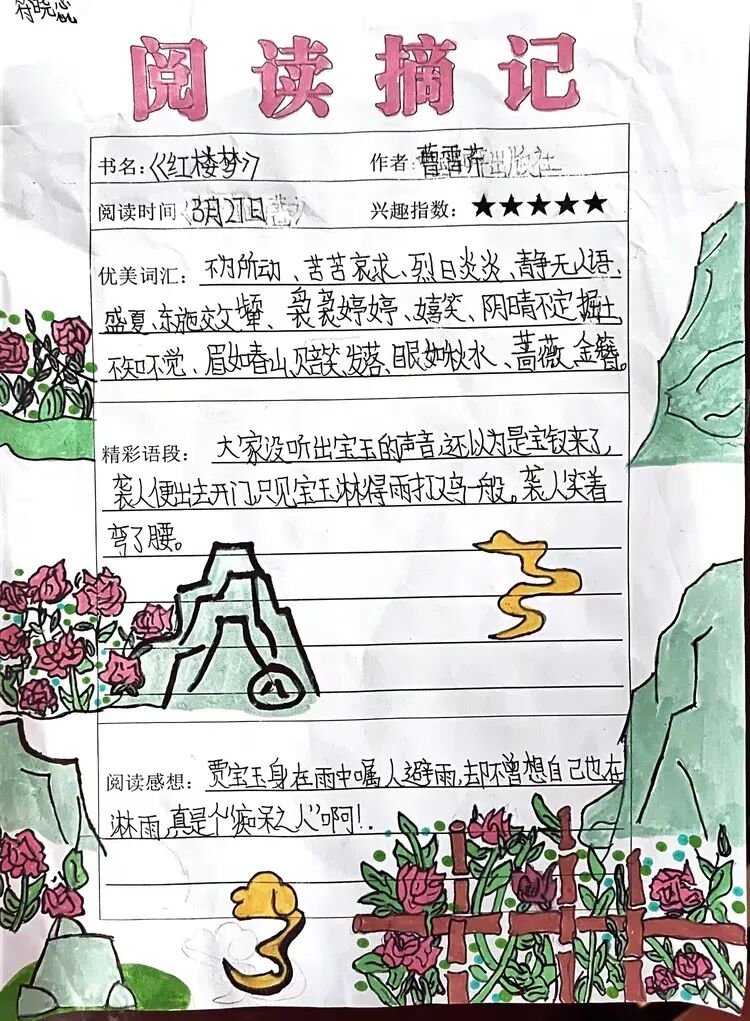 符晓蕊
阅读摘记
书名:《红楼梦》 作者:曹雪芹出版社
阅读时间 3月27日 兴趣指数:★★★★★
优美词汇: 不为所动、苦苦哀求、烈日炎炎、静无人语、
盛夏、东施效颦、袅袅婷婷、嬉笑、阴晴不定掘土
不知不觉、眉如春山、赔笑、发落、眼如秋水、蔷薇、金簪。
精彩语段: 大家没听出宝玉的声音,还以为是宝钗来了,
袭人便出去开门,只见宝玉淋得雨打又鸟一般。袭人笑着
弯了腰。
阅读感想: 贾宝玉身在雨中嘱人避雨,却不曾想自己也在
淋雨,真是个“痴呆之人”啊!.